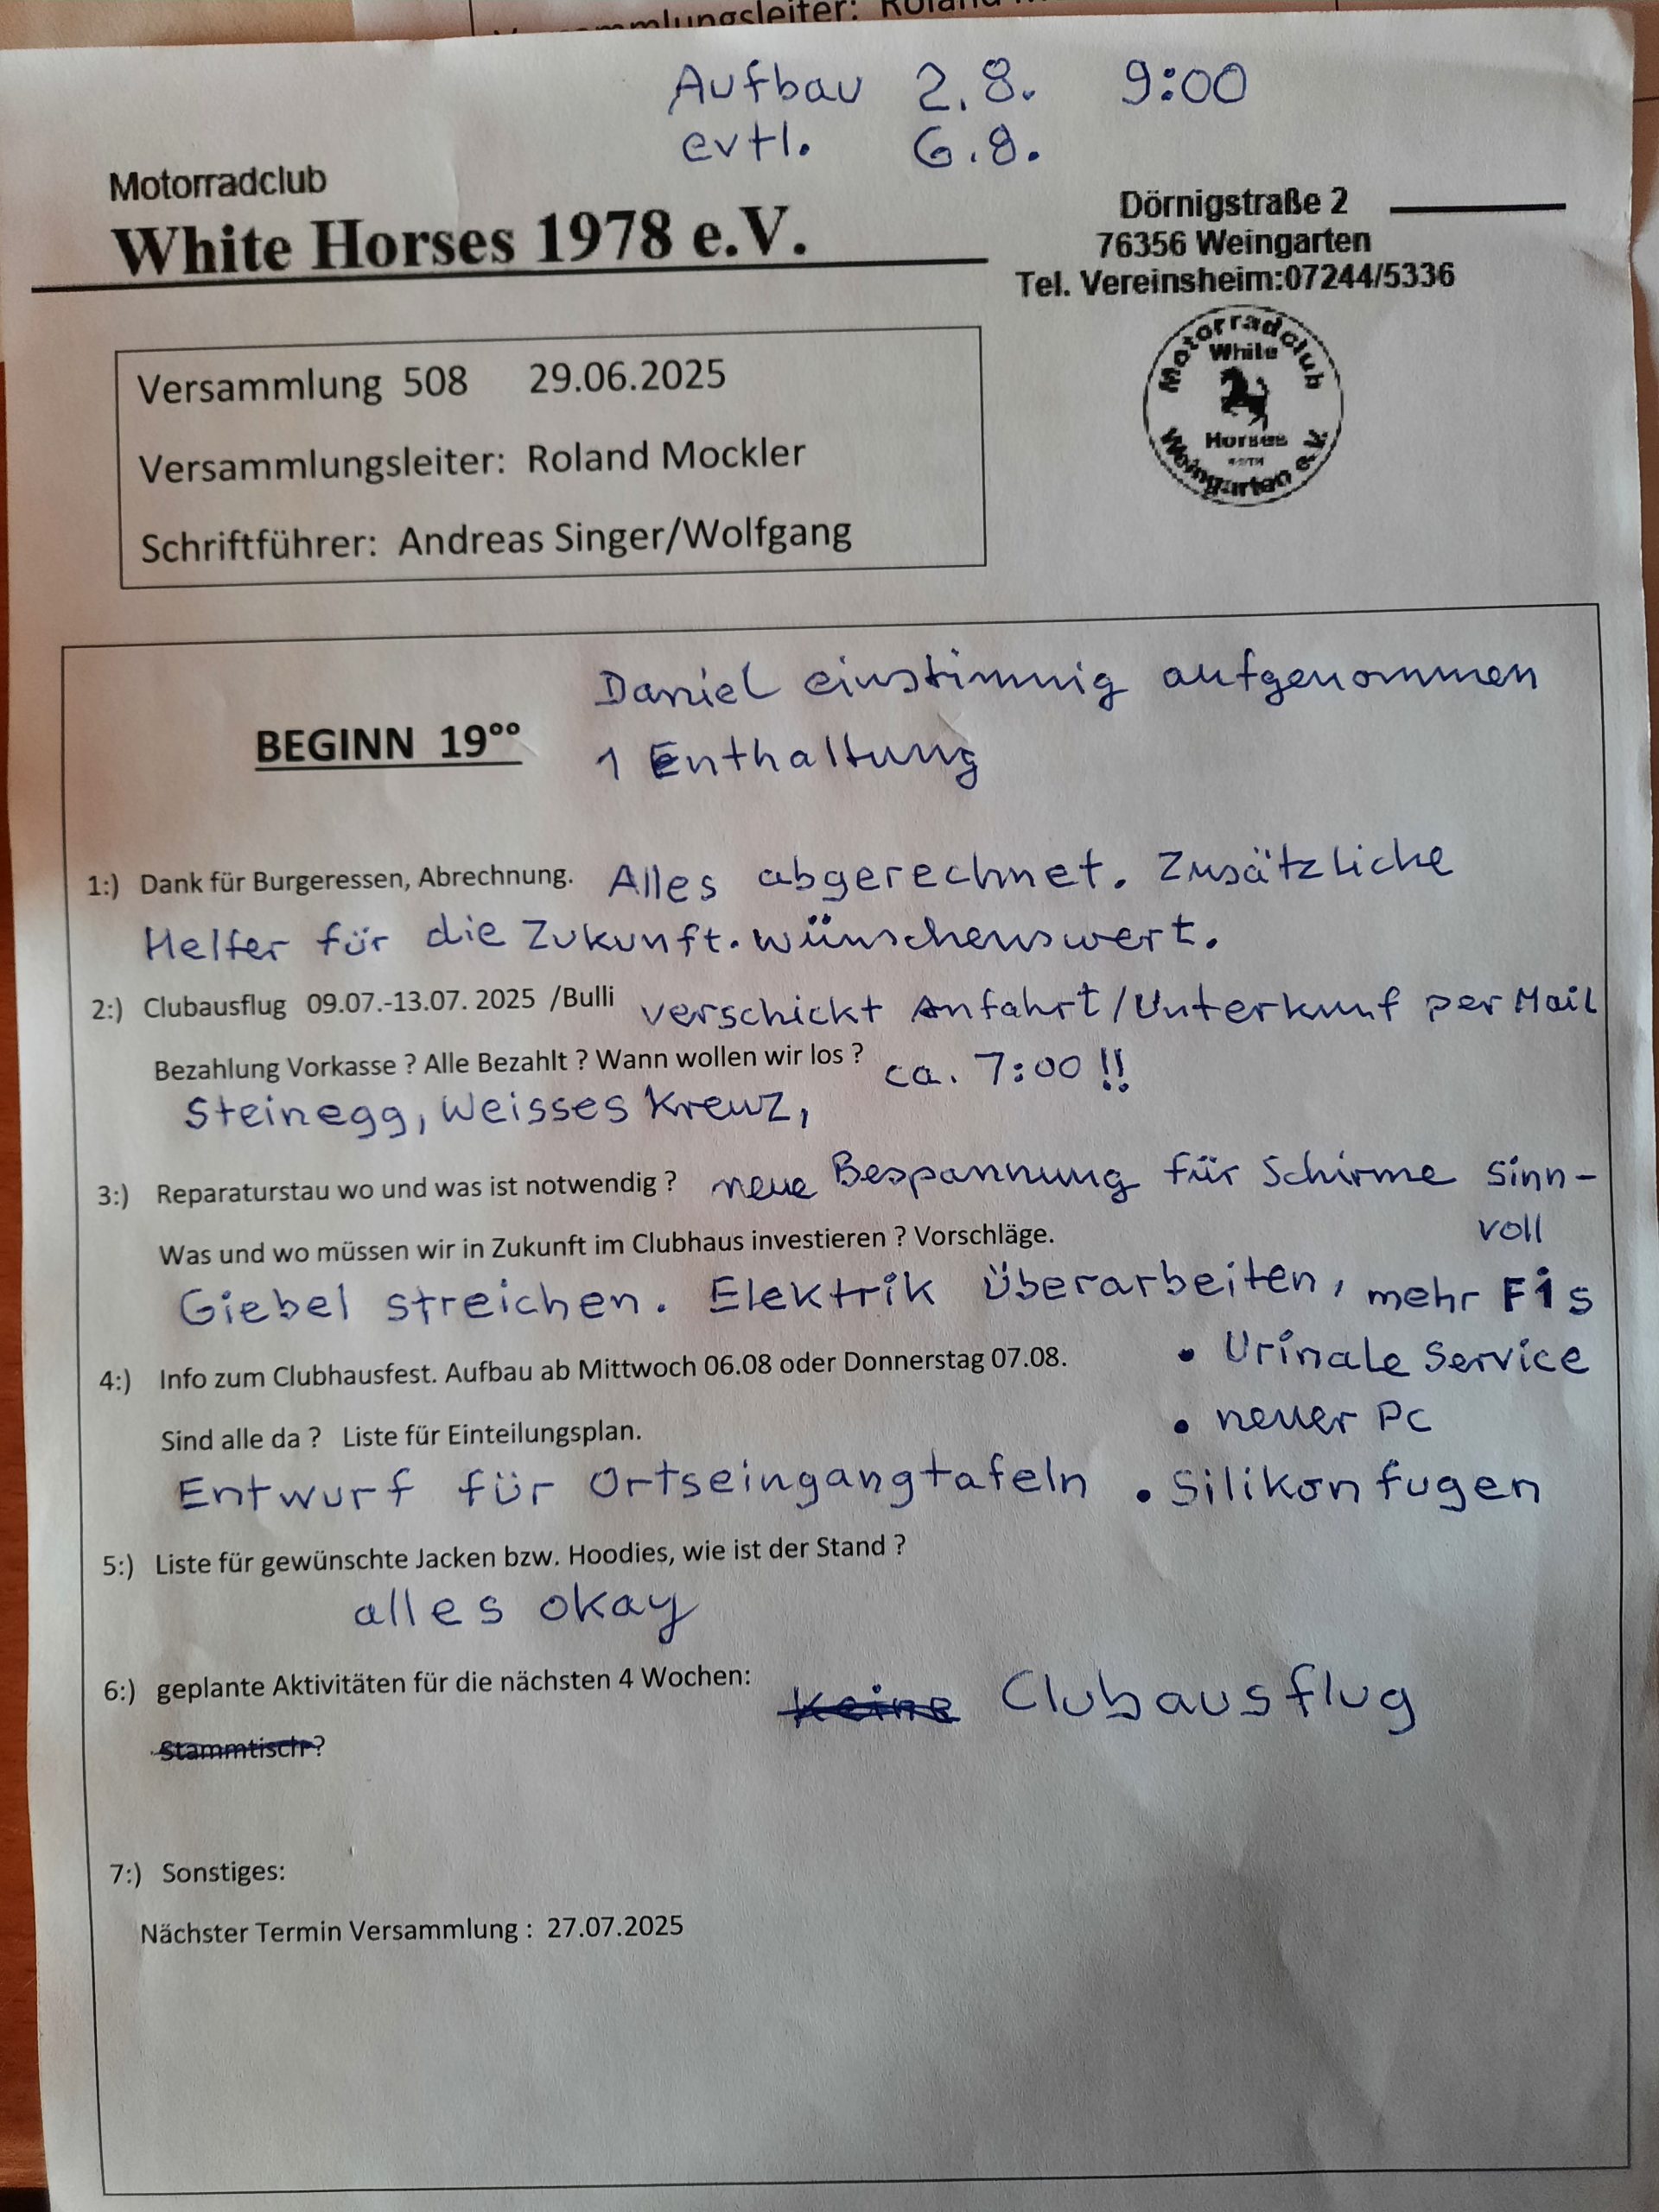 Versammlungsleiter: Roland
Aufbau 2.8. 9:00
evtl. 6.8.
Motorradclub
White Horses 1978 e.V.
Dörnigstraße 2
76356 Weingarten
Tel. Vereinsheim:07244/5336
Motorradclub
White
Horses
Weingarten e.V.
Versammlung 508 29.06.2025
Versammlungsleiter: Roland Mockler
Schriftführer: Andreas Singer/Wolfgang
Daniel einstimmig aufgenommen
BEGINN 19°°
1 Enthaltung
1:) Dank für Burgeressen, Abrechnung. Alles abgerechnet. Zusätzliche
Helfer für die Zukunft. wünschenswert.
2:) Clubausflug 09.07.-13.07. 2025 /Bulli verschickt Anfahrt/Unterkunf per Mail
Bezahlung Vorkasse ? Alle Bezahlt ? Wann wollen wir los ? ca. 7:00 !!
Steinegg, Weisses Kreuz,
3:) Reparaturstau wo und was ist notwendig ? neue Bespannung für Schirme sinn-
voll
Was und wo müssen wir in Zukunft im Clubhaus investieren ? Vorschläge.
Giebel streichen. Elektrik überarbeiten, mehr Fis
• Urinale Service
4:) Info zum Clubhausfest. Aufbau ab Mittwoch 06.08 oder Donnerstag 07.08.
• neuer Pc
Sind alle da ? Liste für Einteilungsplan.
Entwurf für Ortseingangtafeln • Silikonfugen
5:) Liste für gewünschte Jacken bzw. Hoodies, wie ist der Stand ?
alles okay
6:) geplante Aktivitäten für die nächsten 4 Wochen: Keine Clubausflug
Stammtisch ?
7:) Sonstiges:
Nächster Termin Versammlung : 27.07.2025